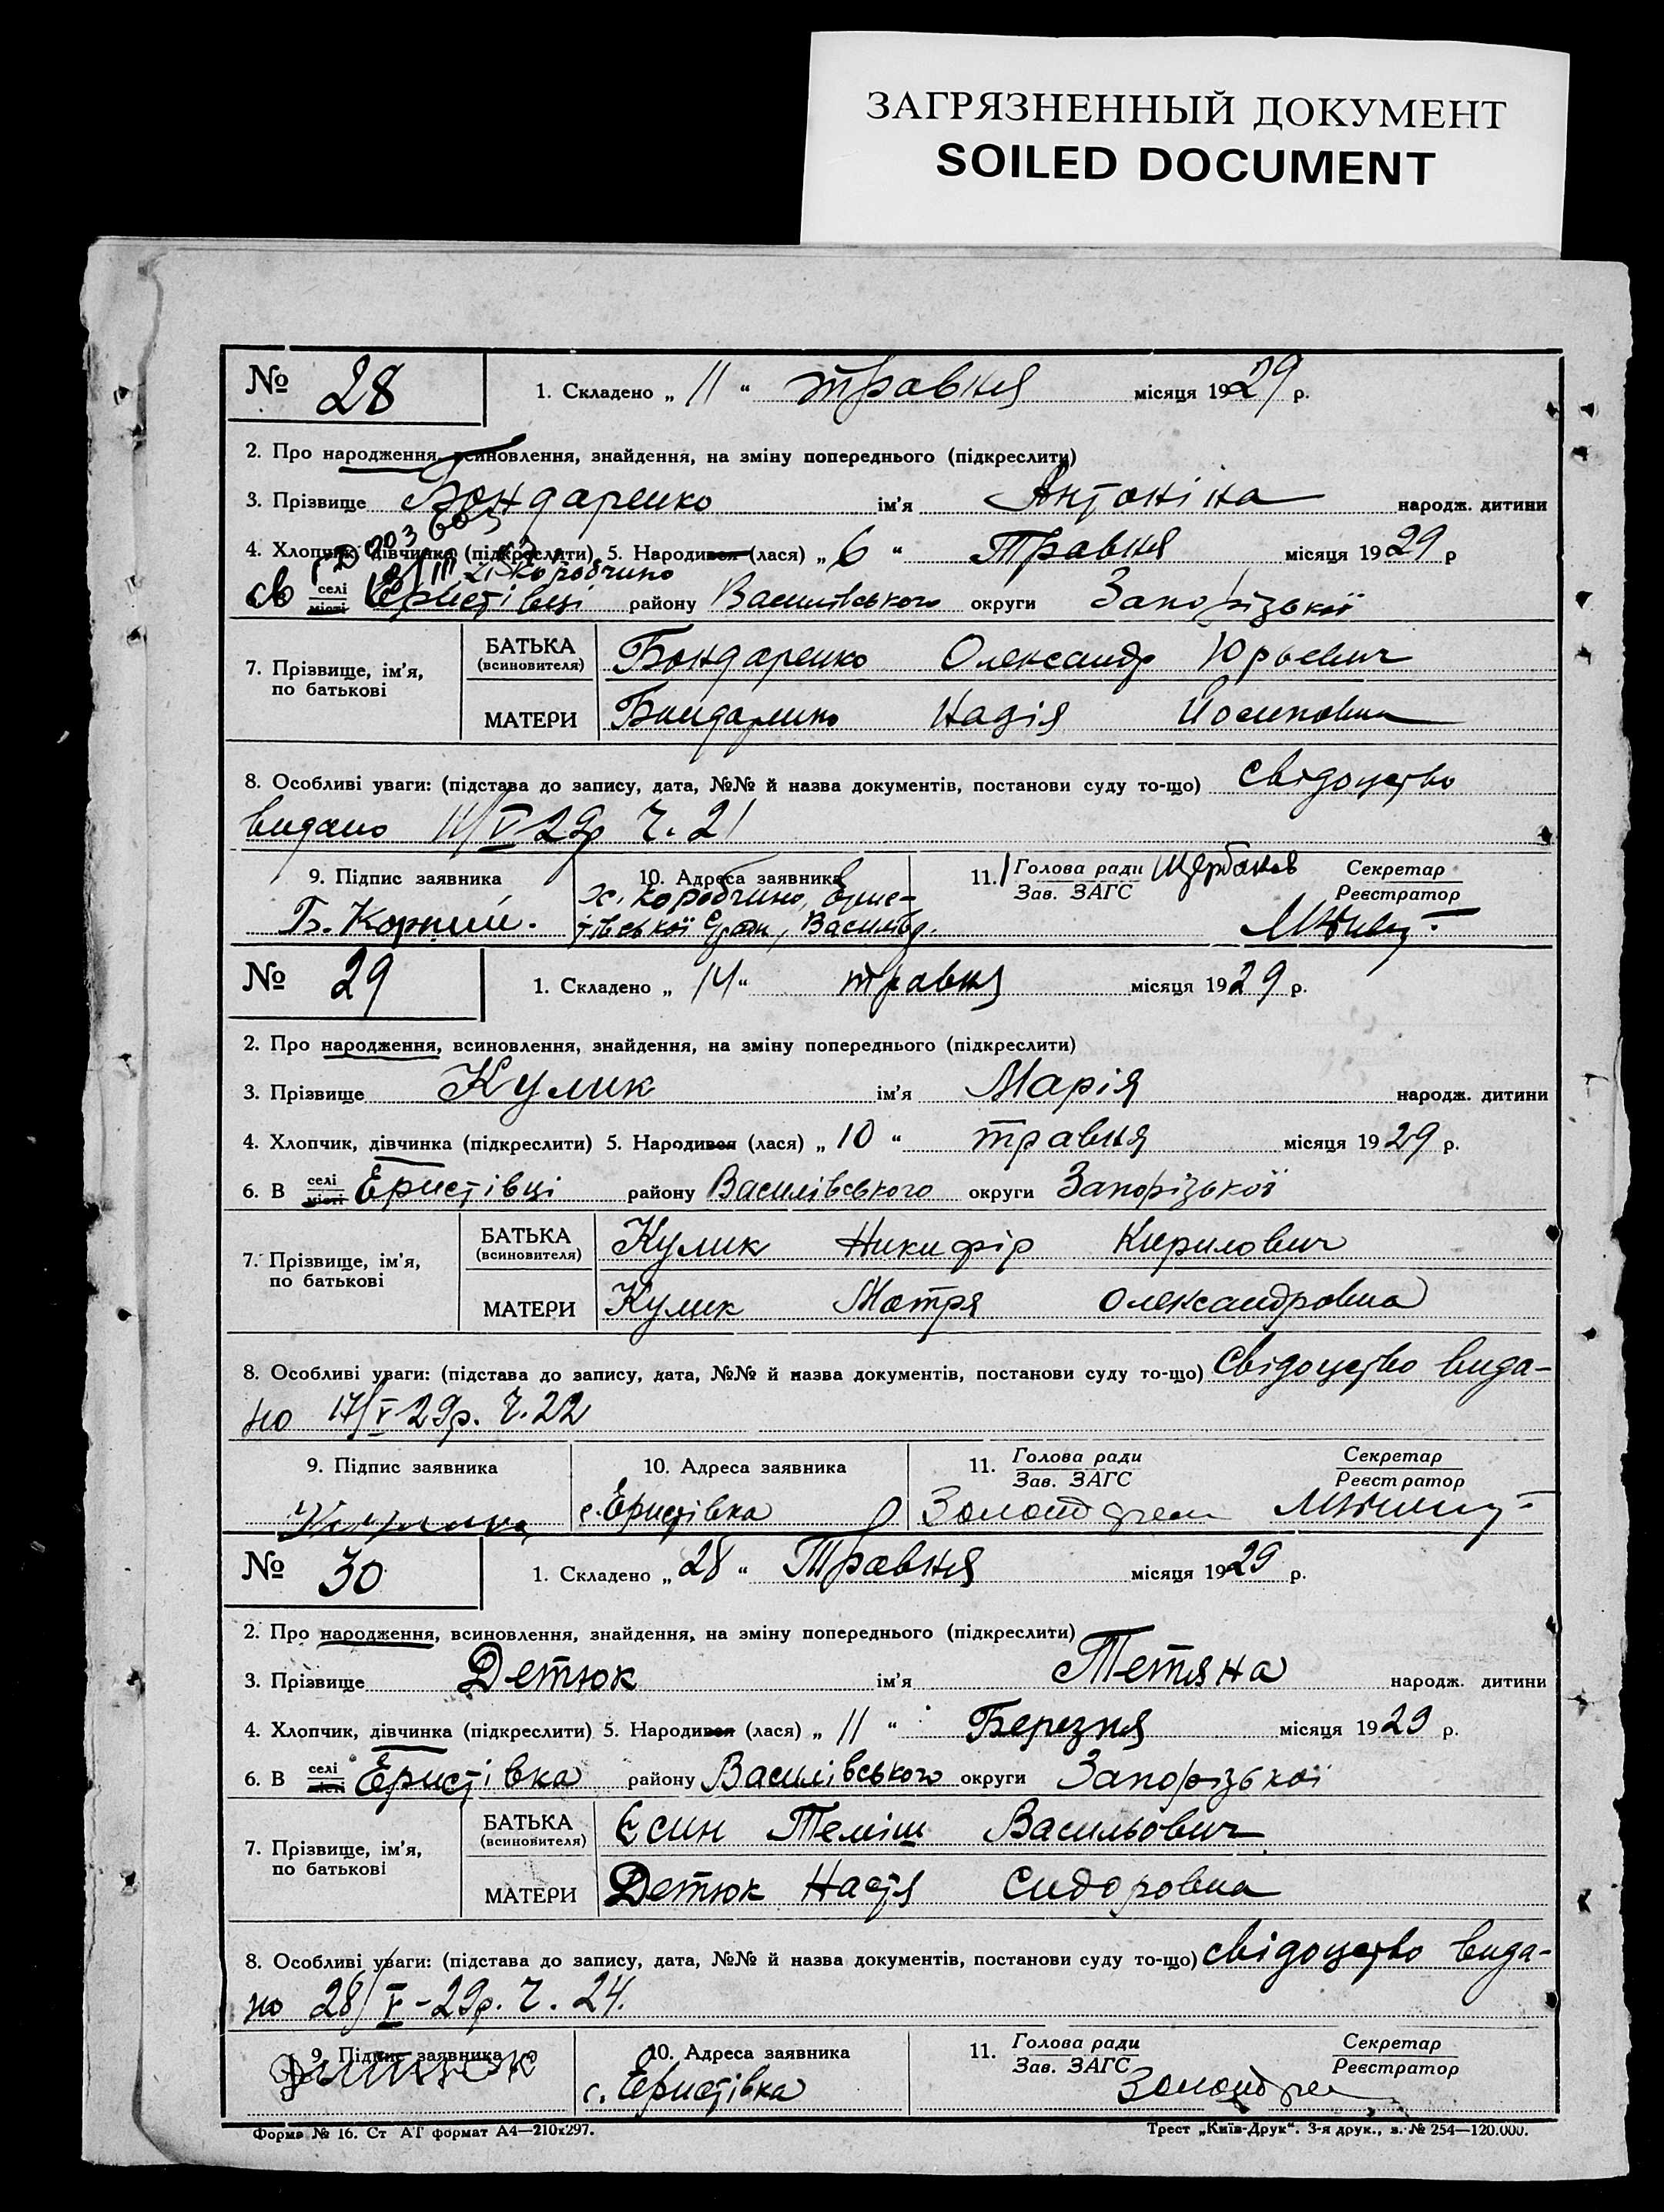 ЗАГРЯЗНЕННЫЙ ДОКУМЕНТ
SOILED DOCUMENT
№ 28
1. Складено „ 11 “ травня місяця 1929 р.
2. Про народження, всиновлення, знайдення, на зміну попереднього (підкреслити)
3. Прізвище Бондаренко ім'я Антоніна народж. дитини
4. Хлопчик, дівчинка (підкреслити) 5. Народився (лася) „ 6 “ Травня місяця 1929 р
Коробчино
селі місті Еристівці району Василівського округи Запорізької
7. Прізвище, ім'я, по батькові
БАТЬКА (всиновителя) Бондаренко Олександр Юрьевич
МАТЕРИ Бондаренко Надія Йосиповна
8. Особливі уваги: (підстава до запису, дата, №№ й назва документів, постанови суду то-що) Свідоцтво
видано 11/V 29р Ч. 21
9. Підпис заявника 10. Адреса заявника 11. Голова ради Зав. ЗАГС Щербаков Секретар Реєстратор
х. Коробчино, Ерис-
тівської с/ради, Василівр.
№ 29
1. Складено „ 14 “ травня місяця 1929 р.
2. Про народження, всиновлення, знайдення, на зміну попереднього (підкреслити)
3. Прізвище Кулик ім'я Марія народж. дитини
4. Хлопчик, дівчинка (підкреслити) 5. Народився (лася) „ 10 “ травня місяця 1929 р.
6. В селі місті Еристівці району Василівського округи Запорізької
7. Прізвище, ім'я, по батькові
БАТЬКА (всиновителя) Кулик Никифір Кирилович
МАТЕРИ Кулик Мотря Олександровна
8. Особливі уваги: (підстава до запису, дата, №№ й назва документів, постанови суду то-що) Свідоцтво вида-
но 17/V 29р. Ч. 22
9. Підпис заявника 10. Адреса заявника 11. Голова ради Зав. ЗАГС Секретар Реєстратор
с. Еристівка
№ 30
1. Складено „ 28 “ Травня місяця 1929 р.
2. Про народження, всиновлення, знайдення, на зміну попереднього (підкреслити)
3. Прізвище Детюк ім'я Тетяна народж. дитини
4. Хлопчик, дівчинка (підкреслити) 5. Народився (лася) „ 11 “ Березня місяця 1929 р.
6. В селі місті Еристівка району Василівського округи Запорізької
7. Прізвище, ім'я, по батькові
БАТЬКА (всиновителя) Єсин Теміш Васильович
МАТЕРИ Детюк Настя Сидоровна
8. Особливі уваги: (підстава до запису, дата, №№ й назва документів, постанови суду то-що) свідоцтво вида-
но 28/V-29р. Ч. 24.
9. Підпис заявника 10. Адреса заявника 11. Голова ради Зав. ЗАГС Секретар Реєстратор
с. Еристівка
Форма № 16. Ст АТ формат А4—210х297.
Трест „Київ-Друк“. 3-я друк., з. № 254—120.000.